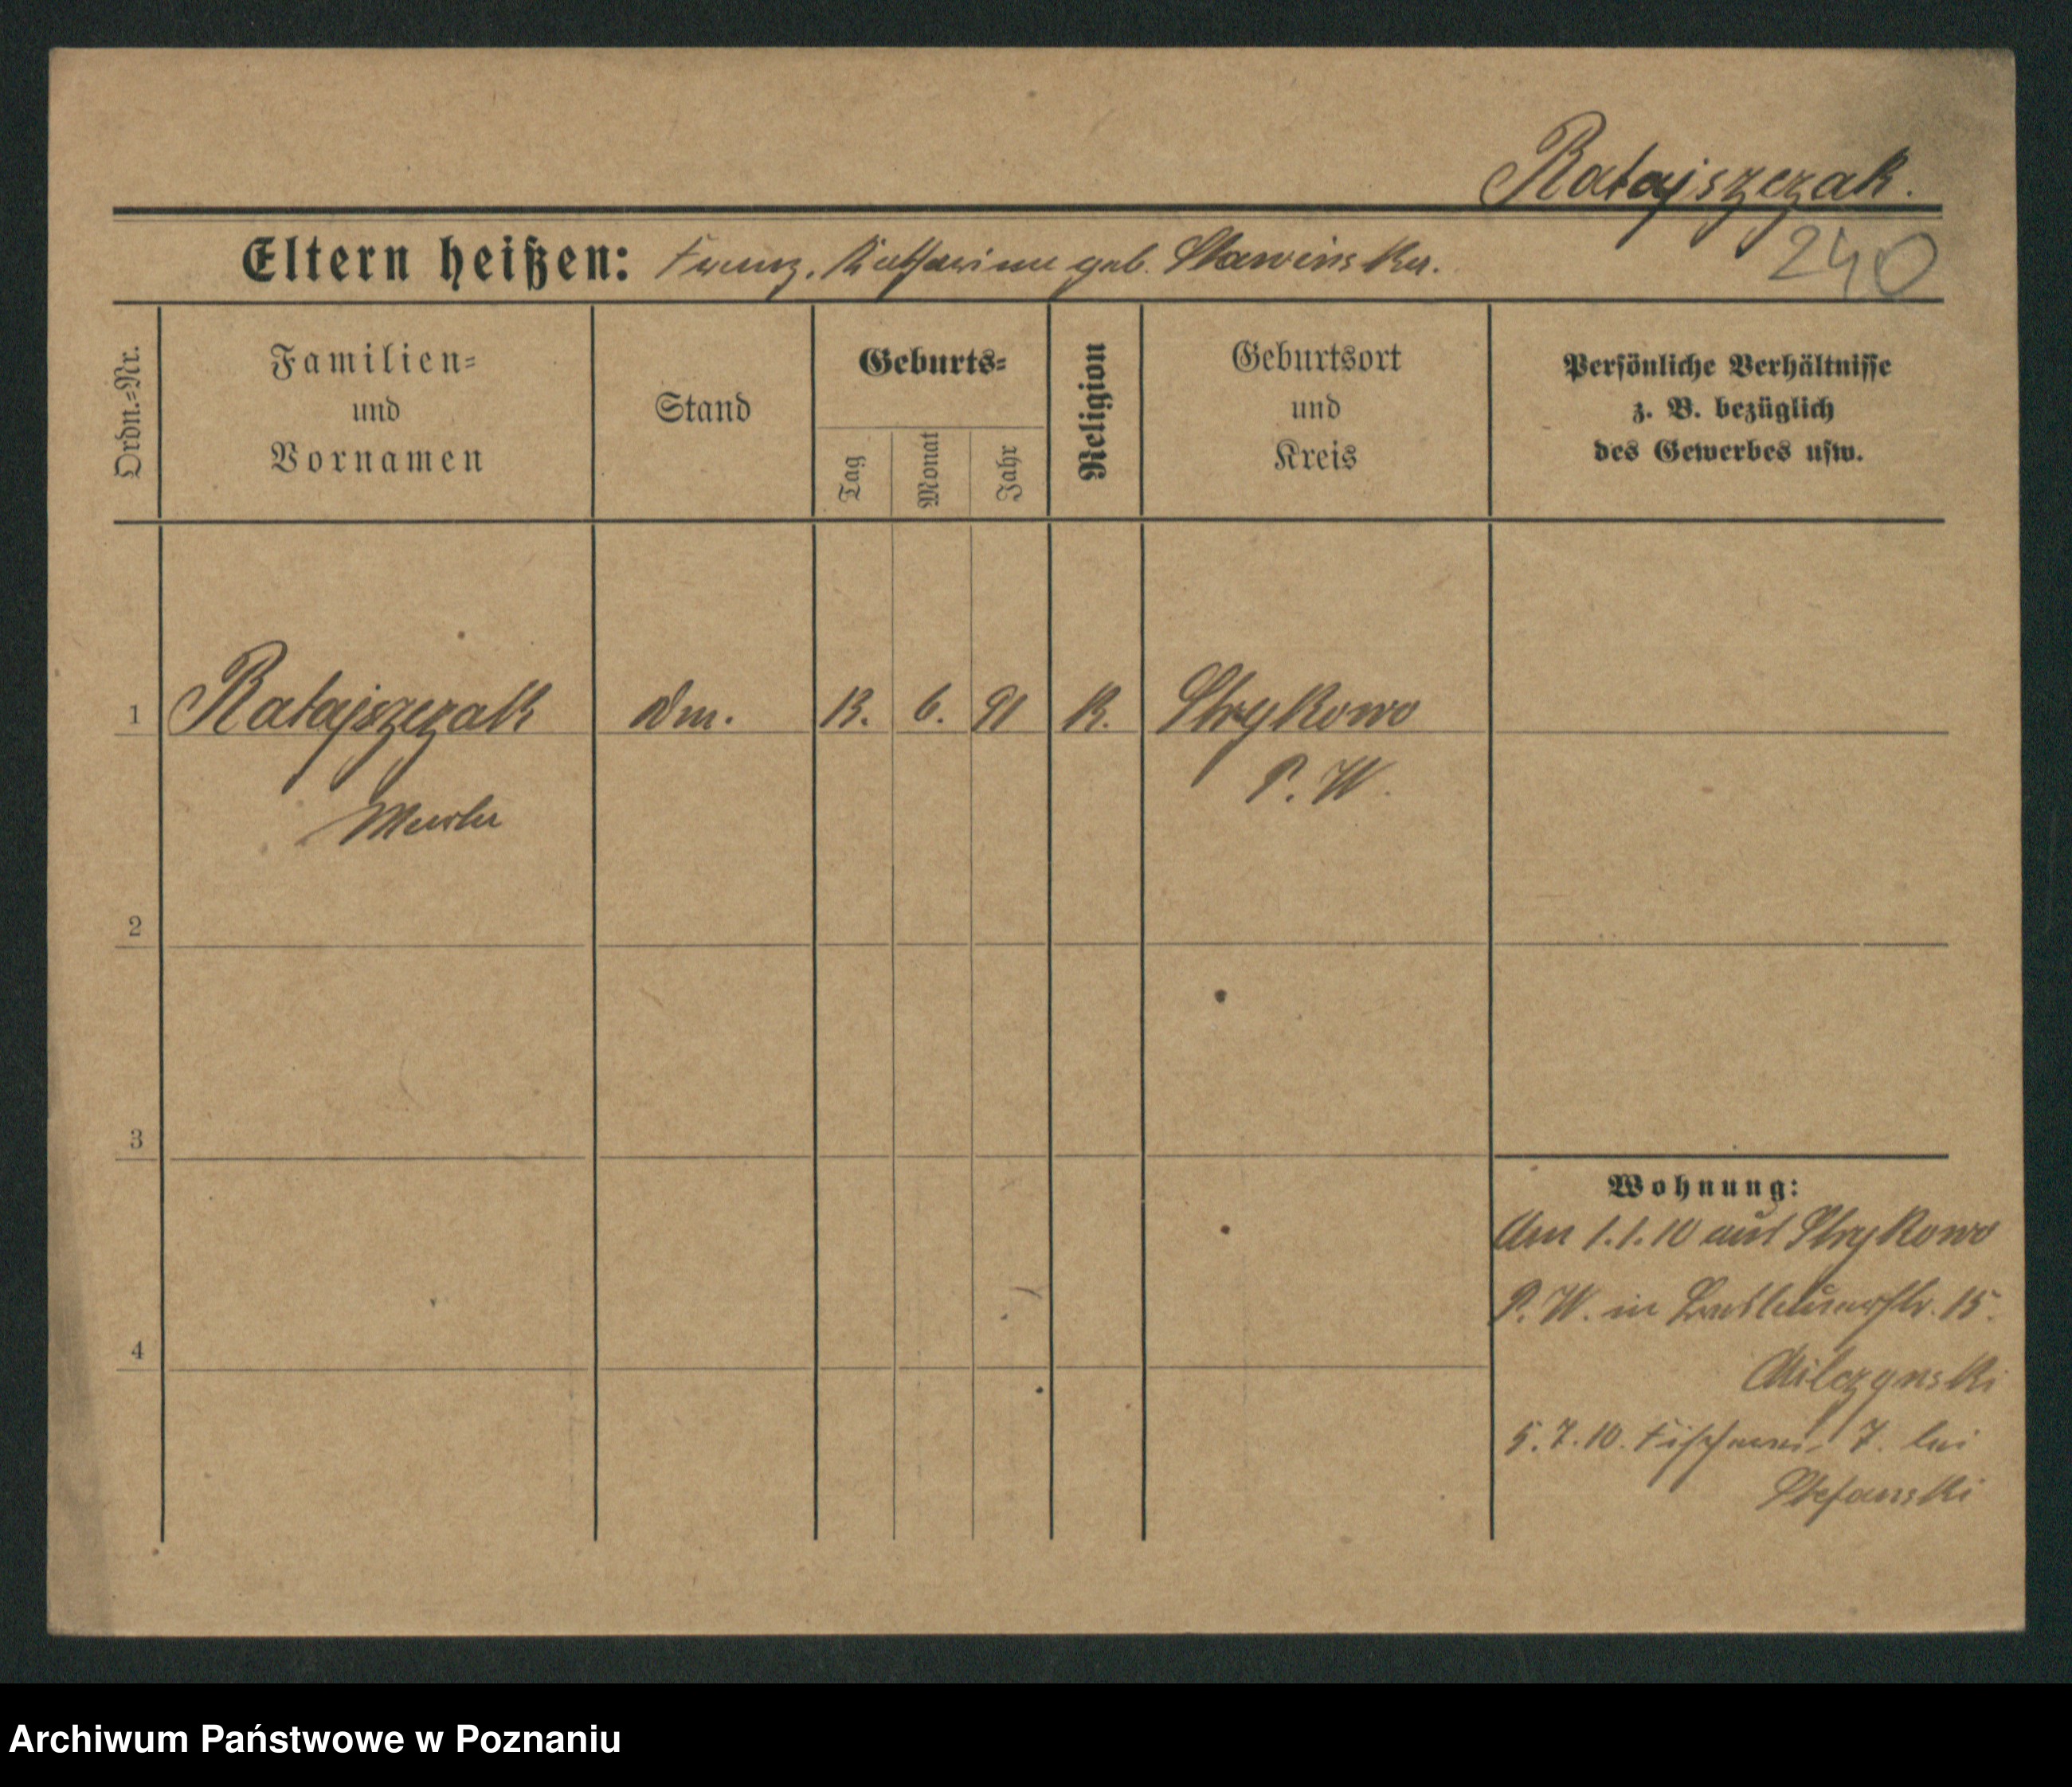 Ratajszczak.
240
Eltern heißen: Franz, Katharina geb. Slawinska.
Ordn.-Nr.
Familien-
und
Vornamen
Stand
Geburts-
Tag
Monat
Jahr
Religion
Geburtsort
und
Kreis
Persönliche Verhältnisse
z. B. bezüglich
des Gewerbes usw.
1 Ratajszczak 6. 91 K. Strykowo
P. W.
2
3
4
Wohnung:
Am 1.1.10 aus Strykowo
P. W. in 15.
5.7.10. Fischerei 7. bei
Stefanski
Archiwum Państwowe w Poznaniu